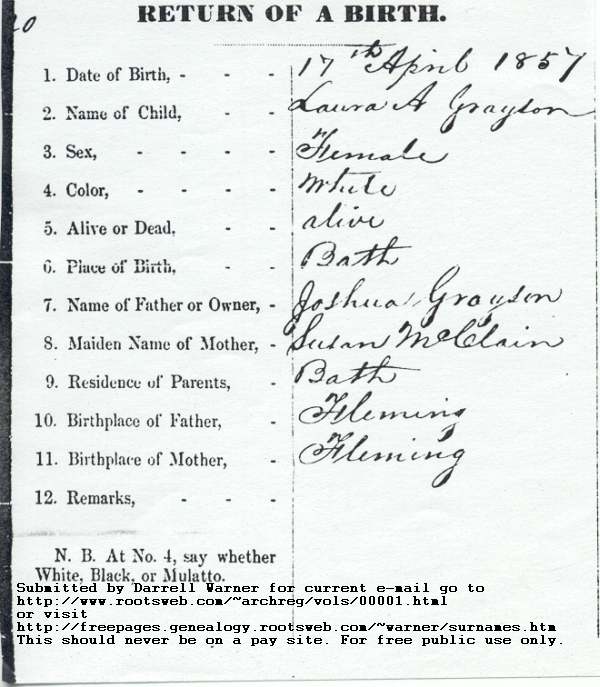 20
RETURN OF A BIRTH.
1. Date of Birth, - - - 17th April 1857
2. Name of Child, - - Laura A Grayson
3. Sex, - - - - Female
4. Color, - - - - White
5. Alive or Dead, - - alive
6. Place of Birth, - - Bath
7. Name of Father or Owner, - Joshua Grayson
8. Maiden Name of Mother, - Susan McClain
9. Residence of Parents, - Bath
10. Birthplace of Father, - Fleming
11. Birthplace of Mother, - Fleming
12. Remarks, - - -
N. B. At No. 4, say whether
White, Black, or Mulatto.
Submitted by Darrell Warner for current e-mail go to
http://www.rootsweb.com/~archreg/vols/00001.html
or visit
http://freepages.genealogy.rootsweb.com/~warner/surnames.htm
This should never be on a pay site. For free public use only.